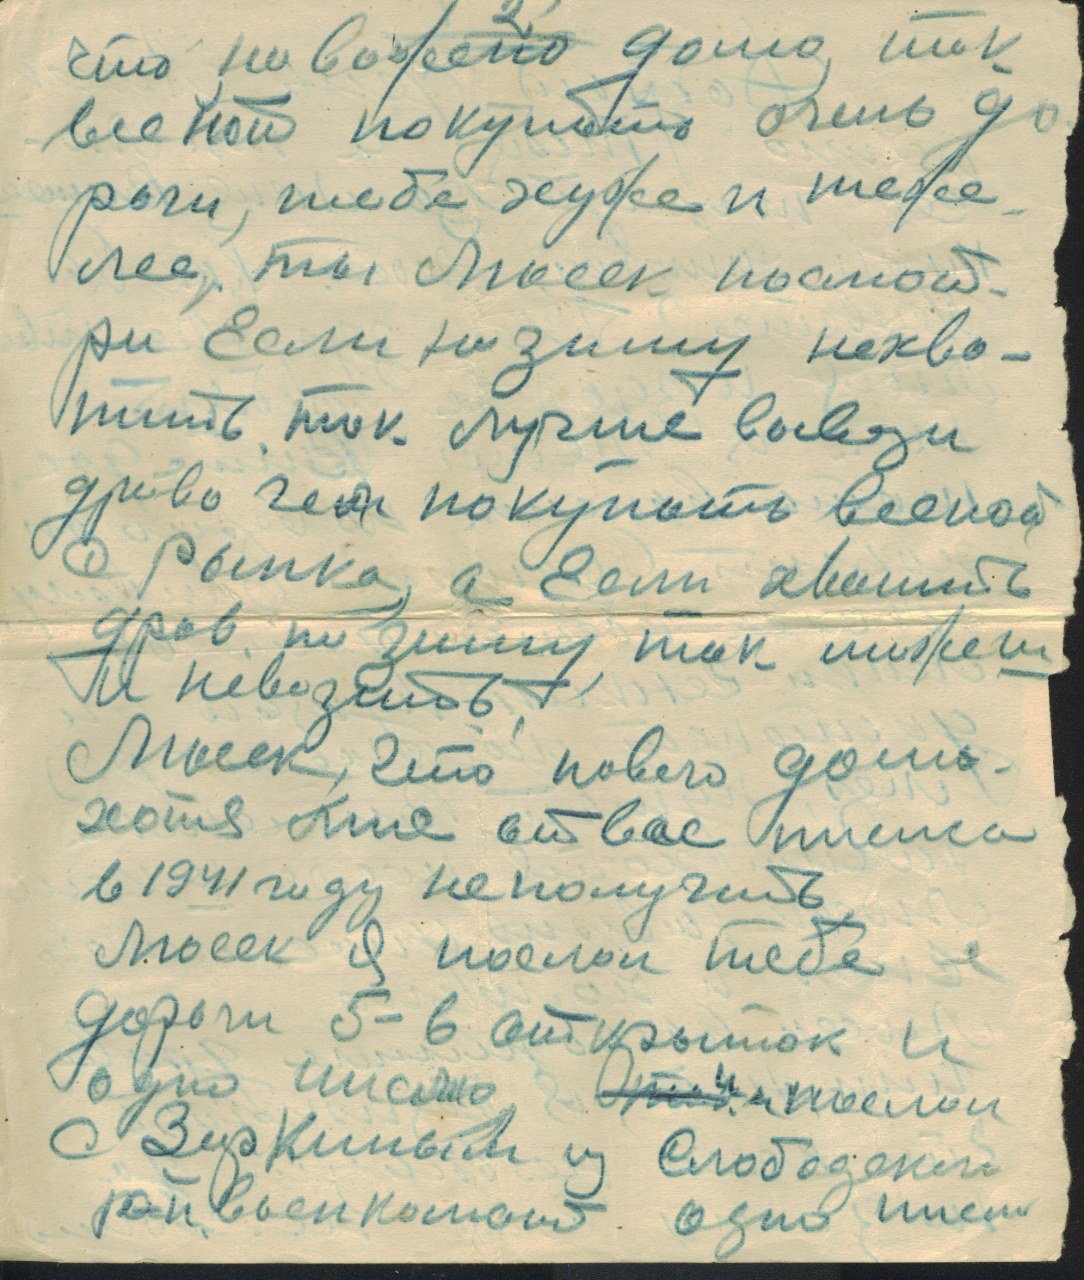 2.
что, на вожено дома, так
весной покупать очень до
роги, тебе хуже и теже-
лее, ты Люсек посмот-
ри Если на зиму нехва-
тить так лучше вывези
дрова чем покупать весной
с рынка, а Если хватить
дров на зиму так можеш
и невозить,
Люсек, что нового дома.
хотя мне от вас писма
в 1941 году неполучить,
Люсек я послал тебе с
дороги 5-6 открыток и
одно писмо и послал
с Зяркиным из Слободской
райвоенкомат одно писмо